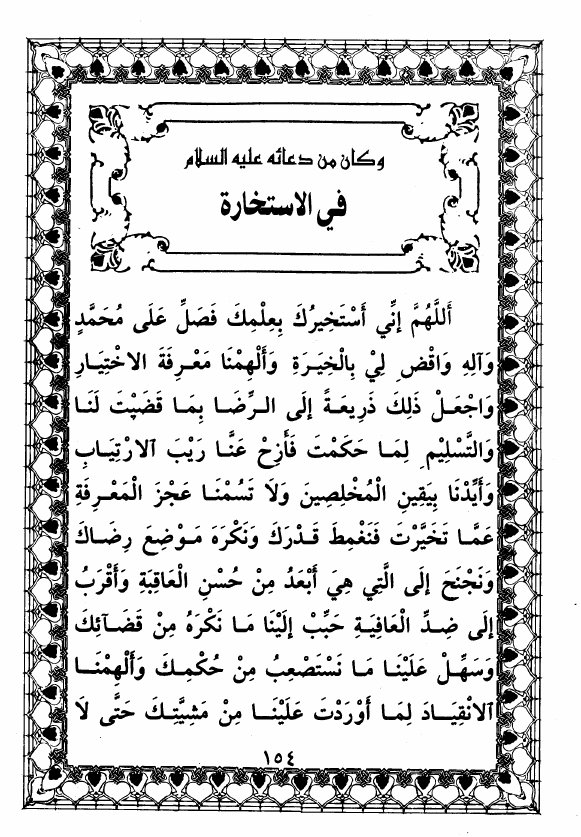 وكان من دعائه عليه السلام
في الاستخارة
أَللَّهُمَّ إِنِّي أَسْتَخِيرُكَ بِعِلْمِكَ فَصَلِّ عَلَى مُحَمَّدٍ
وَآلِهِ وَاقْضِ لِيْ بِالْخِيَرَةِ وَأَلْهِمْنَا مَعْرِفَةَ الاخْتِيَارِ
وَاجْعَلْ ذلِكَ ذَرِيعَةً إِلَى الرِّضَا بِمَا قَضَيْتَ لَنَا
وَالتَّسْلِيْمِ لِمَا حَكَمْتَ فَأَزِحْ عَنَّا رَيْبَ الارْتِيَابِ
وَأَيِّدْنَا بِيَقِينِ الْمُخْلِصِينَ وَلاَ تَسُمْنَا عَجْزَ الْمَعْرِفَةِ
عَمَّا تَخَيَّرْتَ فَنَغْمِطَ قَدْرَكَ وَنَكْرَهَ مَوْضِعَ رِضَاكَ
وَنَجْنَحَ إِلَى الَّتِي هِيَ أَبْعَدُ مِنْ حُسْنِ الْعَاقِبَةِ وَأَقْرَبُ
إِلَى ضِدِّ الْعَافِيَةِ حَبِّبْ إِلَيْنَا مَا نَكْرَهُ مِنْ قَضَآئِكَ
وَسَهِّلْ عَلَيْنَا مَا نَسْتَصْعِبُ مِنْ حُكْمِكَ وَأَلْهِمْنَا
الانْقِيَادَ لِمَا أَوْرَدْتَ عَلَيْنَا مِنْ مَشِيَّتِكَ حَتَّى لاَ
١٥٤